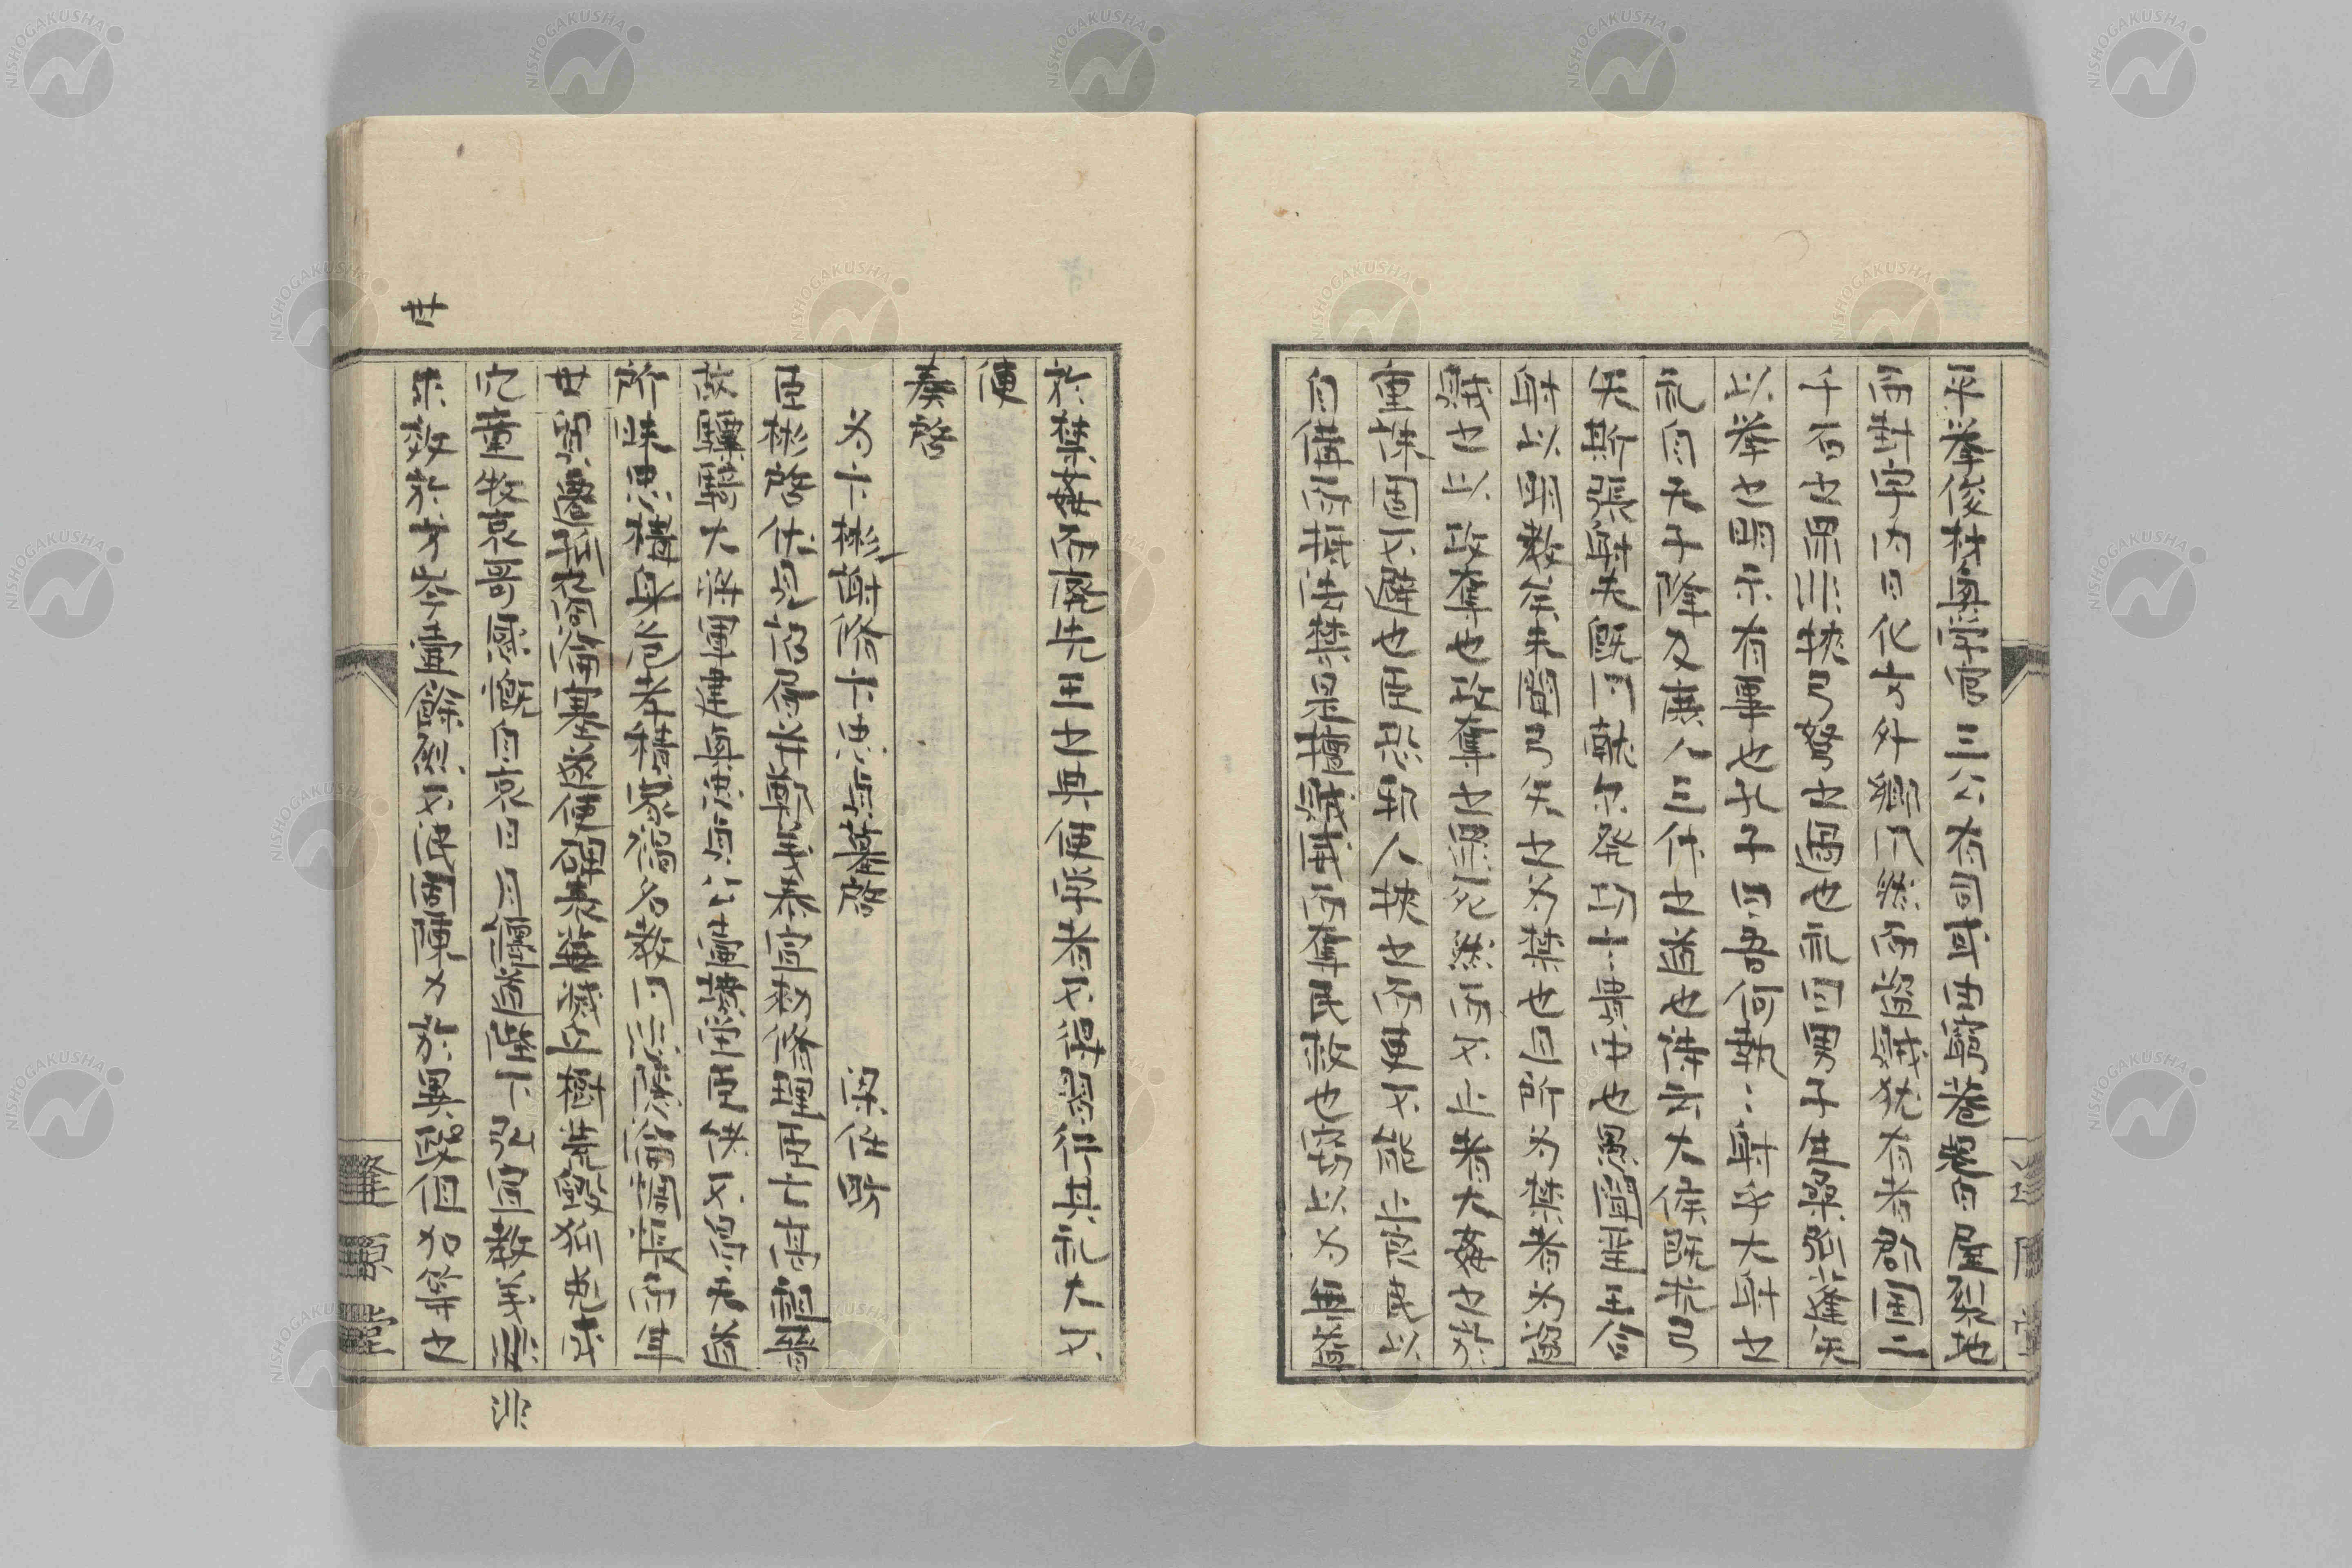 平挙俊材興学官三公有司或由窮巷起白屋裂地
而封宇内日化方外郷風然而盗賊犹有者郡国二
千石之罪非挟弓弩之過也礼曰男子生桑弧蓬矢
以挙之明示有事也孔子曰吾何執〻射乎大射之
礼自天子降及庶人三代之道也詩云大侯既抗弓
矢斯張射夫既同献尓発功言貴中也愚聞聖王合
射以明教矣未聞弓矢之為禁也且所为禁者为盗
賊之以攻奪也攻奪之罪死然而不止者大姦之於
重誅固不避也臣恐邪人挟之而吏不能止良民以
自備而抵法禁是擅賊威而奪民救也窃以为無益
於禁姦而廃先王之典使学者不得習行其礼大不
便
奏啓
为卞彬謝脩卞忠貞墓啓 梁任昉
臣彬啓伏見詔書并鄭義泰宣敕脩理臣亡高祖晉
故驃騎大将軍建興忠貞公壷墳塋臣 不昌天道
所昧忠構身危孝積家禍名教同悲隠淪惆悵而年
世貿遷孤裔淪塞遂使碑表蕪滅丘樹荒毀狐兎成
穴童牧哀哥感慨自哀日月纏迫陛下弘宣教義非
非
求效於方今壷餘烈不泯固陳力於異 但加等之
世